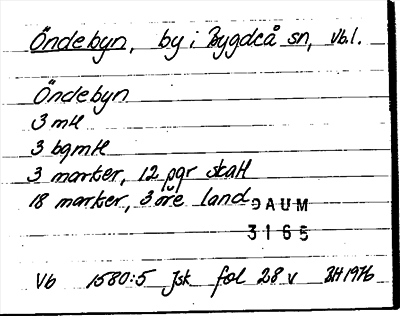 Öndebyn, by i Bygdeå sn, Vb.l.
Öndebyn
3 mtl
3 bgmtl
3 marker, 12 pgr skatt
18 marker, 3 öre land
DAUM
3165
Vb 1580:5 Jsk fol 28 v BH 1976